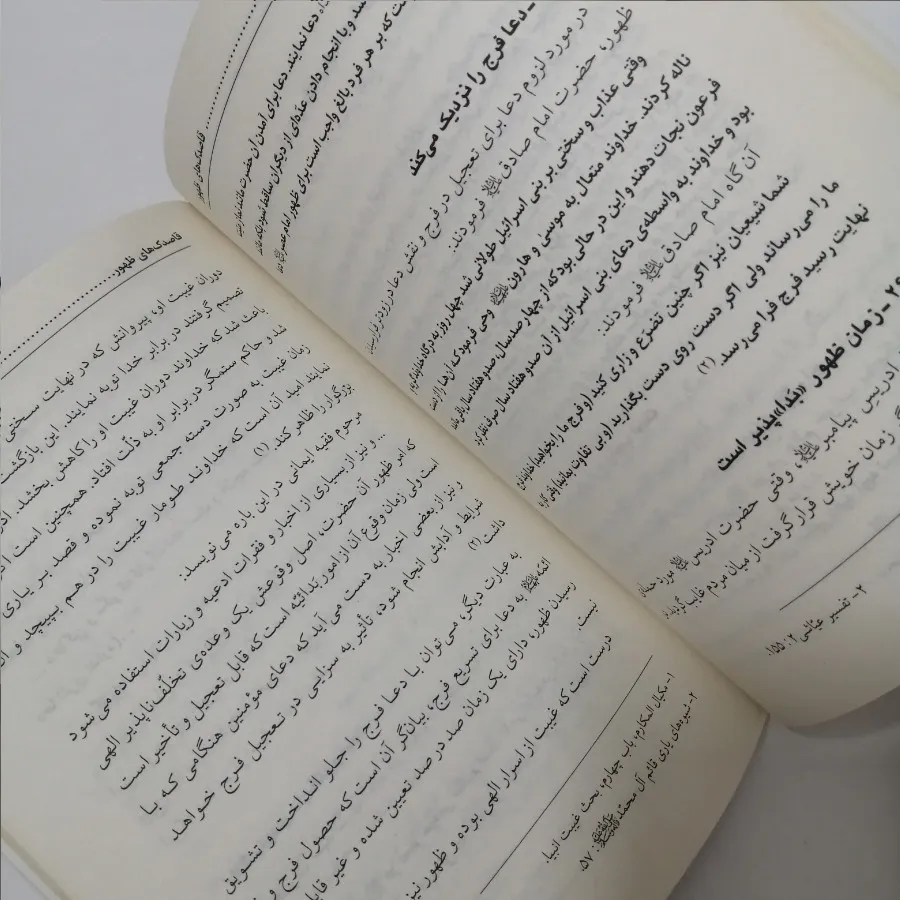 قاصدک‌های ظهور
دعا نمایند. دعا برای آمدن آن حضرت مانند نماز نیست
و با انجام دادن عده‌ای از دیگران ساقط شود بلکه مانند
که بر هر فرد بالغ واجب است برای ظهور امام عصر
دعا فرج را نزدیک می‌کند
در مورد لزوم دعا برای تعجیل در فرج و نقش دعا در زود فرا رسیدن
ظهور، حضرت امام صادق فرمودند:
وقتی عذاب و سختی بر بنی اسرائیل طولانی شد چهل روز به درگاه خداوند گریه و
ناله کردند. خداوند متعال به موسی و هارون وحی فرمود که آن‌ها را از دست
فرعون نجات دهند و این در حالی بود که از چهارصد سال صد و هفتاد سال باقی مانده
بود و خداوند به واسطه‌ی دعای بنی اسرائیل از آن صد و هفتاد سال صرف نظر کرد.
آن گاه امام صادق فرمودند:
شما شیعیان نیز اگر چنین تضرع و زاری کنید (و فرج ما را بخواهید) خداوند فرج
ما را می‌رساند ولی اگر دست روی دست بگذارید (و بی تفاوت بمانید) وقتی کار به
نهایت رسید فرج فرا می‌رسد. (۲)
زمان ظهور «بَدا»پذیر است
ادریس پیامبر، وقتی حضرت ادریس مورد
زمان خویش قرار گرفت از میان مردم غایب گردید. در
۲ - تفسیر عیّاشی ۲: ۱۵۵.
قاصدک‌های ظهور
دوران غیبت او، پیروانش که در نهایت سختی
تصمیم گرفتند در برابر خدا توبه نمایند. این بازگشت
باعث شد که خداوند دوران غیبت او را کاهش بخشد. ادریس
شد و حاکم ستمگر در برابر او به ذلّت افتاد. همچنین است
زمان غیبت به صورت دسته جمعی توبه نموده و قصد بر یاری
نمایند امید آن است که خداوند طومار غیبت را در هم بپیچد و
بزرگوار را ظاهر کند. (۱)
مرحوم فقیه ایمانی در این باره می نویسد:
... و نیز از بسیاری از اخبار و فقرات ادعیه و زیارات استفاده می شود
که امر ظهور آن حضرت، اصل وقوعش یک وعده‌ی تخلّف‌ناپذیر الهی
است ولی زمان وقوع آن از امور بَدائیّه است که قابل تعجیل و تأخیر است
و نیز از بعضی اخبار به دست می آید که دعای مؤمنین هنگامی که با
شرایط و آدابش انجام شود، تأثیر به سزایی در تعجیل فرج خواهد
داشت. (۲)
به عبارت دیگر، می توان با دعا فرج را جلو انداخت و تشویق
ائمّه به دعا برای تسریع فرج، بیان‌گر آن است که حصول فرج و
رسیدن ظهور، دارای یک زمان صد در صد تعیین شده و غیر قابل
نیست.
درست است که غیبت از اسرار الهی بوده و ظهور نیز
۱- مکیال المکارم، باب چهارم، بحث غیبت انبیا.
۲- شیوه‌های یاری قائم آل محمّد: ۵۷.